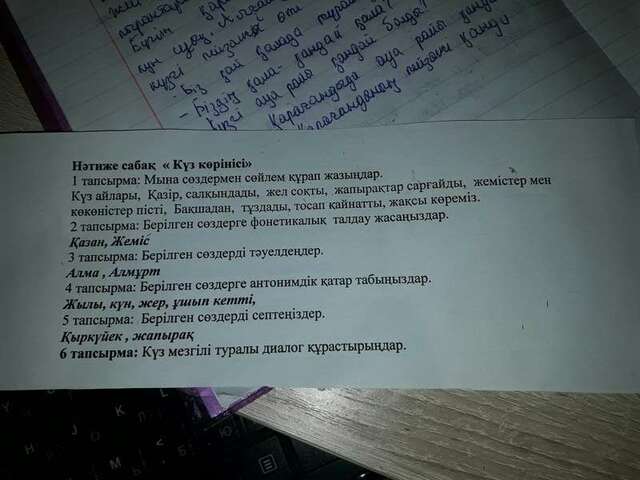 күн суық.
күзгі
- Біз қай қалада тұрамыз
- Біздің қала қандай қала?
күзгі ауа райы қандай болды?
Қарағандыда ауа райы қандай
Нәтиже сабақ « Күз көрінісі»
1 тапсырма: Мына сөздермен сөйлем құрап жазыңдар.
Күз айлары, Қазір, салқындады, жел соқты, жапырақтар сарғайды, жемістер мен
көкөністер пісті, Бақшадан, тұздады, тосап қайнатты, жақсы көреміз.
2 тапсырма: Берілген сөздерге фонетикалық талдау жасаңыздар.
Қазан, Жеміс
3 тапсырма: Берілген сөздерді тәуелдеңдер.
Алма , Алмұрт
4 тапсырма: Берілген сөздерге антонимдік қатар табыңыздар.
Жылы, күн, жер, ұшып кетті,
5 тапсырма: Берілген сөздерді септеңіздер.
Қыркүйек , жапырақ
6 тапсырма: Күз мезгілі туралы диалог құрастырыңдар.